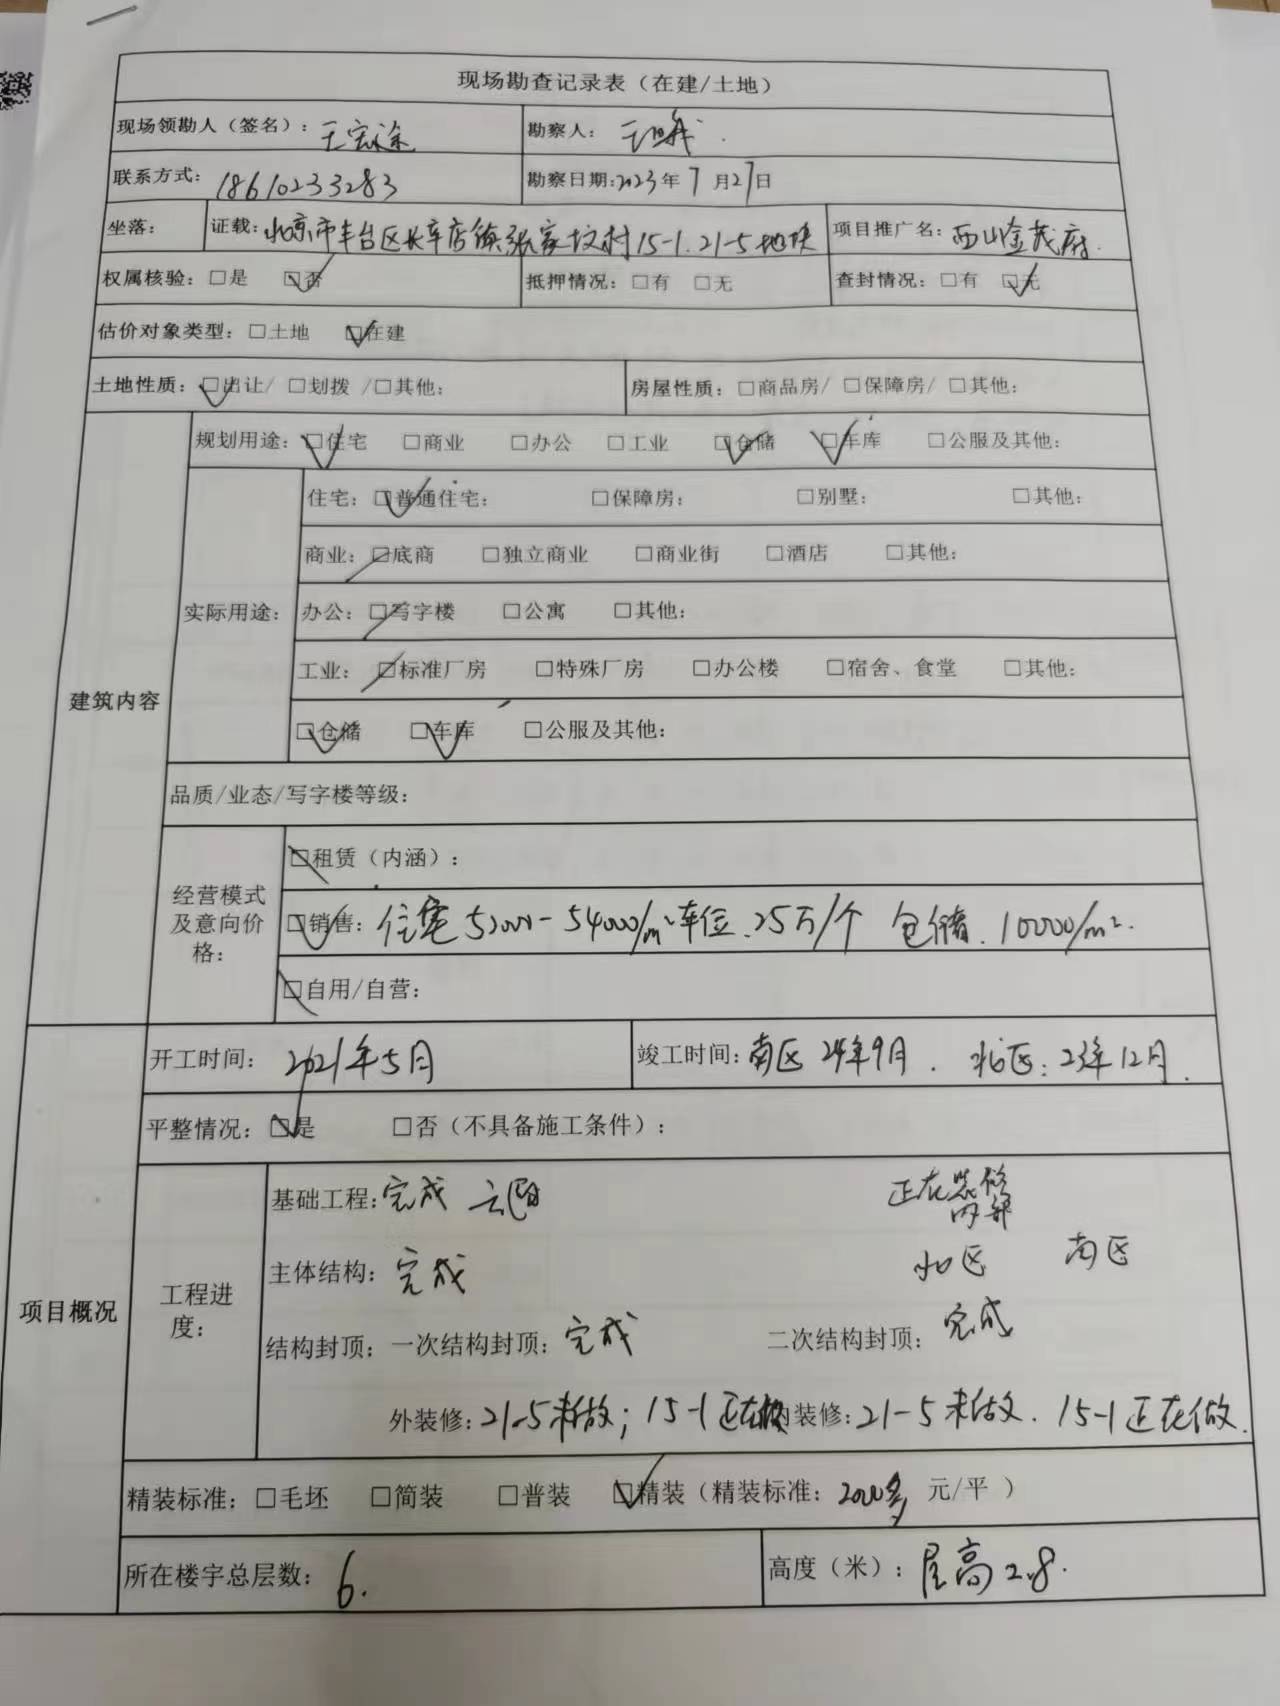 现场勘查记录表（在建/土地）
现场领勘人（签名）：王宏途 勘察人：
联系方式：18610233283 勘察日期:2023年7月27日
坐落： 证载：北京市丰台区长辛店镇张家坟村15-1.21-5地块 项目推广名：西山金茂府.
权属核验：□是 □否 抵押情况：□有 □无 查封情况：□有 □无
估价对象类型：□土地 □在建
土地性质：□出让/ □划拨 /□其他： 房屋性质：□商品房/ □保障房/ □其他：
建筑内容
规划用途：□住宅 □商业 □办公 □工业 □仓储 □车库 □公服及其他：
实际用途：
住宅：□普通住宅： □保障房： □别墅： □其他：
商业：□底商 □独立商业 □商业街 □酒店 □其他：
办公：□写字楼 □公寓 □其他：
工业：□标准厂房 □特殊厂房 □办公楼 □宿舍、食堂 □其他：
□仓储 □车库 □公服及其他：
品质/业态/写字楼等级：
经营模式
及意向价
格：
□租赁（内涵）：
□销售：住宅52000-54000/m² 车位.25万/个 仓储.10000/m².
□自用/自营：
项目概况
开工时间：2021年5月 竣工时间：南区24年9月. 北区：23年12月.
平整情况：□是 □否（不具备施工条件）：
工程进
度：
基础工程：完成 正在装修
内部
主体结构：完成 北区 南区
结构封顶：一次结构封顶：完成 二次结构封顶：完成
外装修：21-5未做；15-1正在做 内装修：21-5未做.15-1正在做.
精装标准：□毛坯 □简装 □普装 □精装（精装标准：2000多 元/平）
所在楼宇总层数：6. 高度（米）：层高2.8.